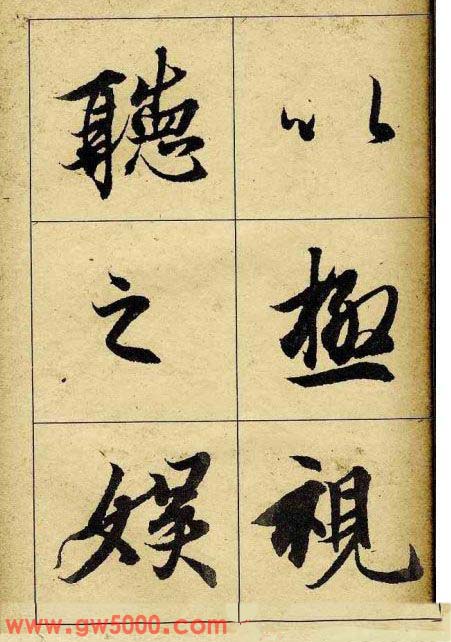 以極視
聽之娛
www.gw5000.com